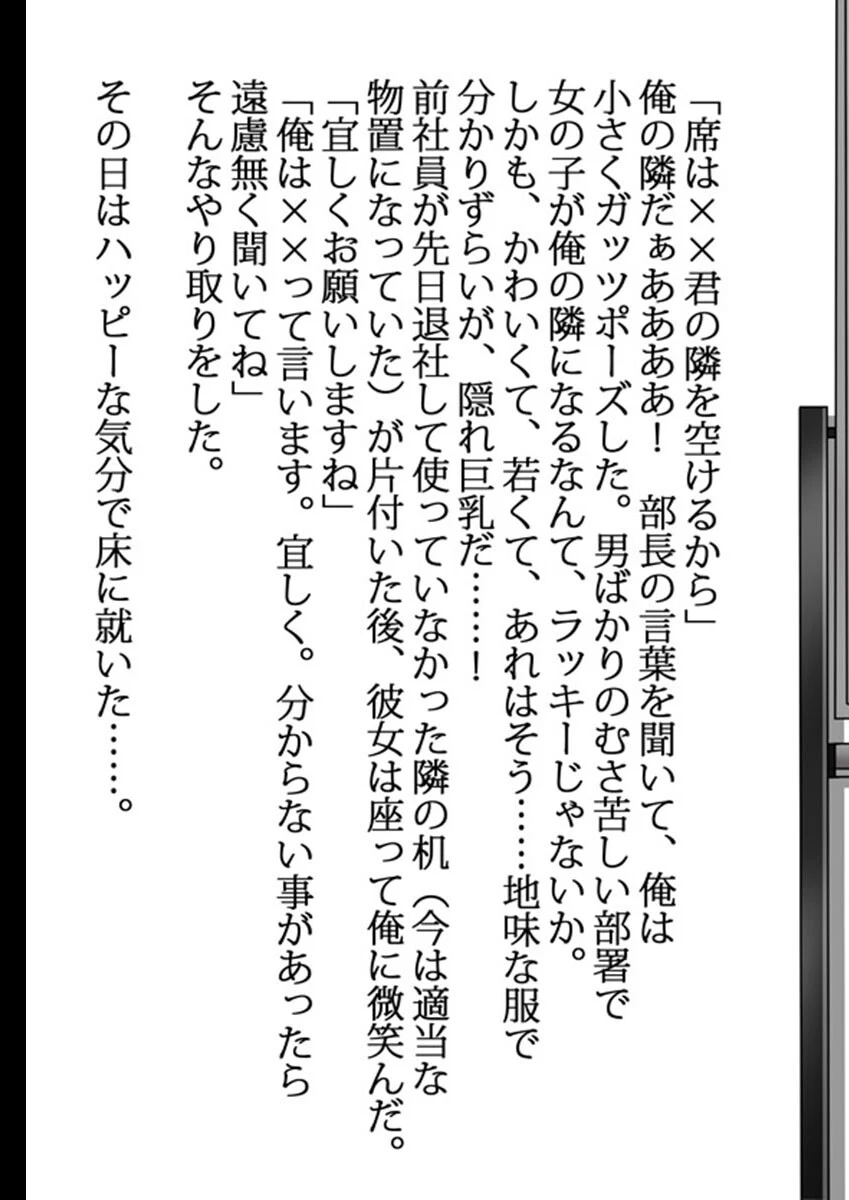 「席は××君の隣を空けるから」
俺の隣だぁああああ！　部長の言葉を聞いて、俺は
小さくガッツポーズした。男ばかりのむさ苦しい部署で
女の子が俺の隣になるなんて、ラッキーじゃないか。
しかも、かわいくて、若くて、あれはそう……地味な服で
分かりずらいが、隠れ巨乳だ……！
前社員が先日退社して使っていなかった隣の机（今は適当な
物置になっていた）が片付いた後、彼女は座って俺に微笑んだ。
「宜しくお願いしますね」
「俺は××って言います。宜しく。分からない事があったら
遠慮無く聞いてね」
そんなやり取りをした。
その日はハッピーな気分で床に就いた……。